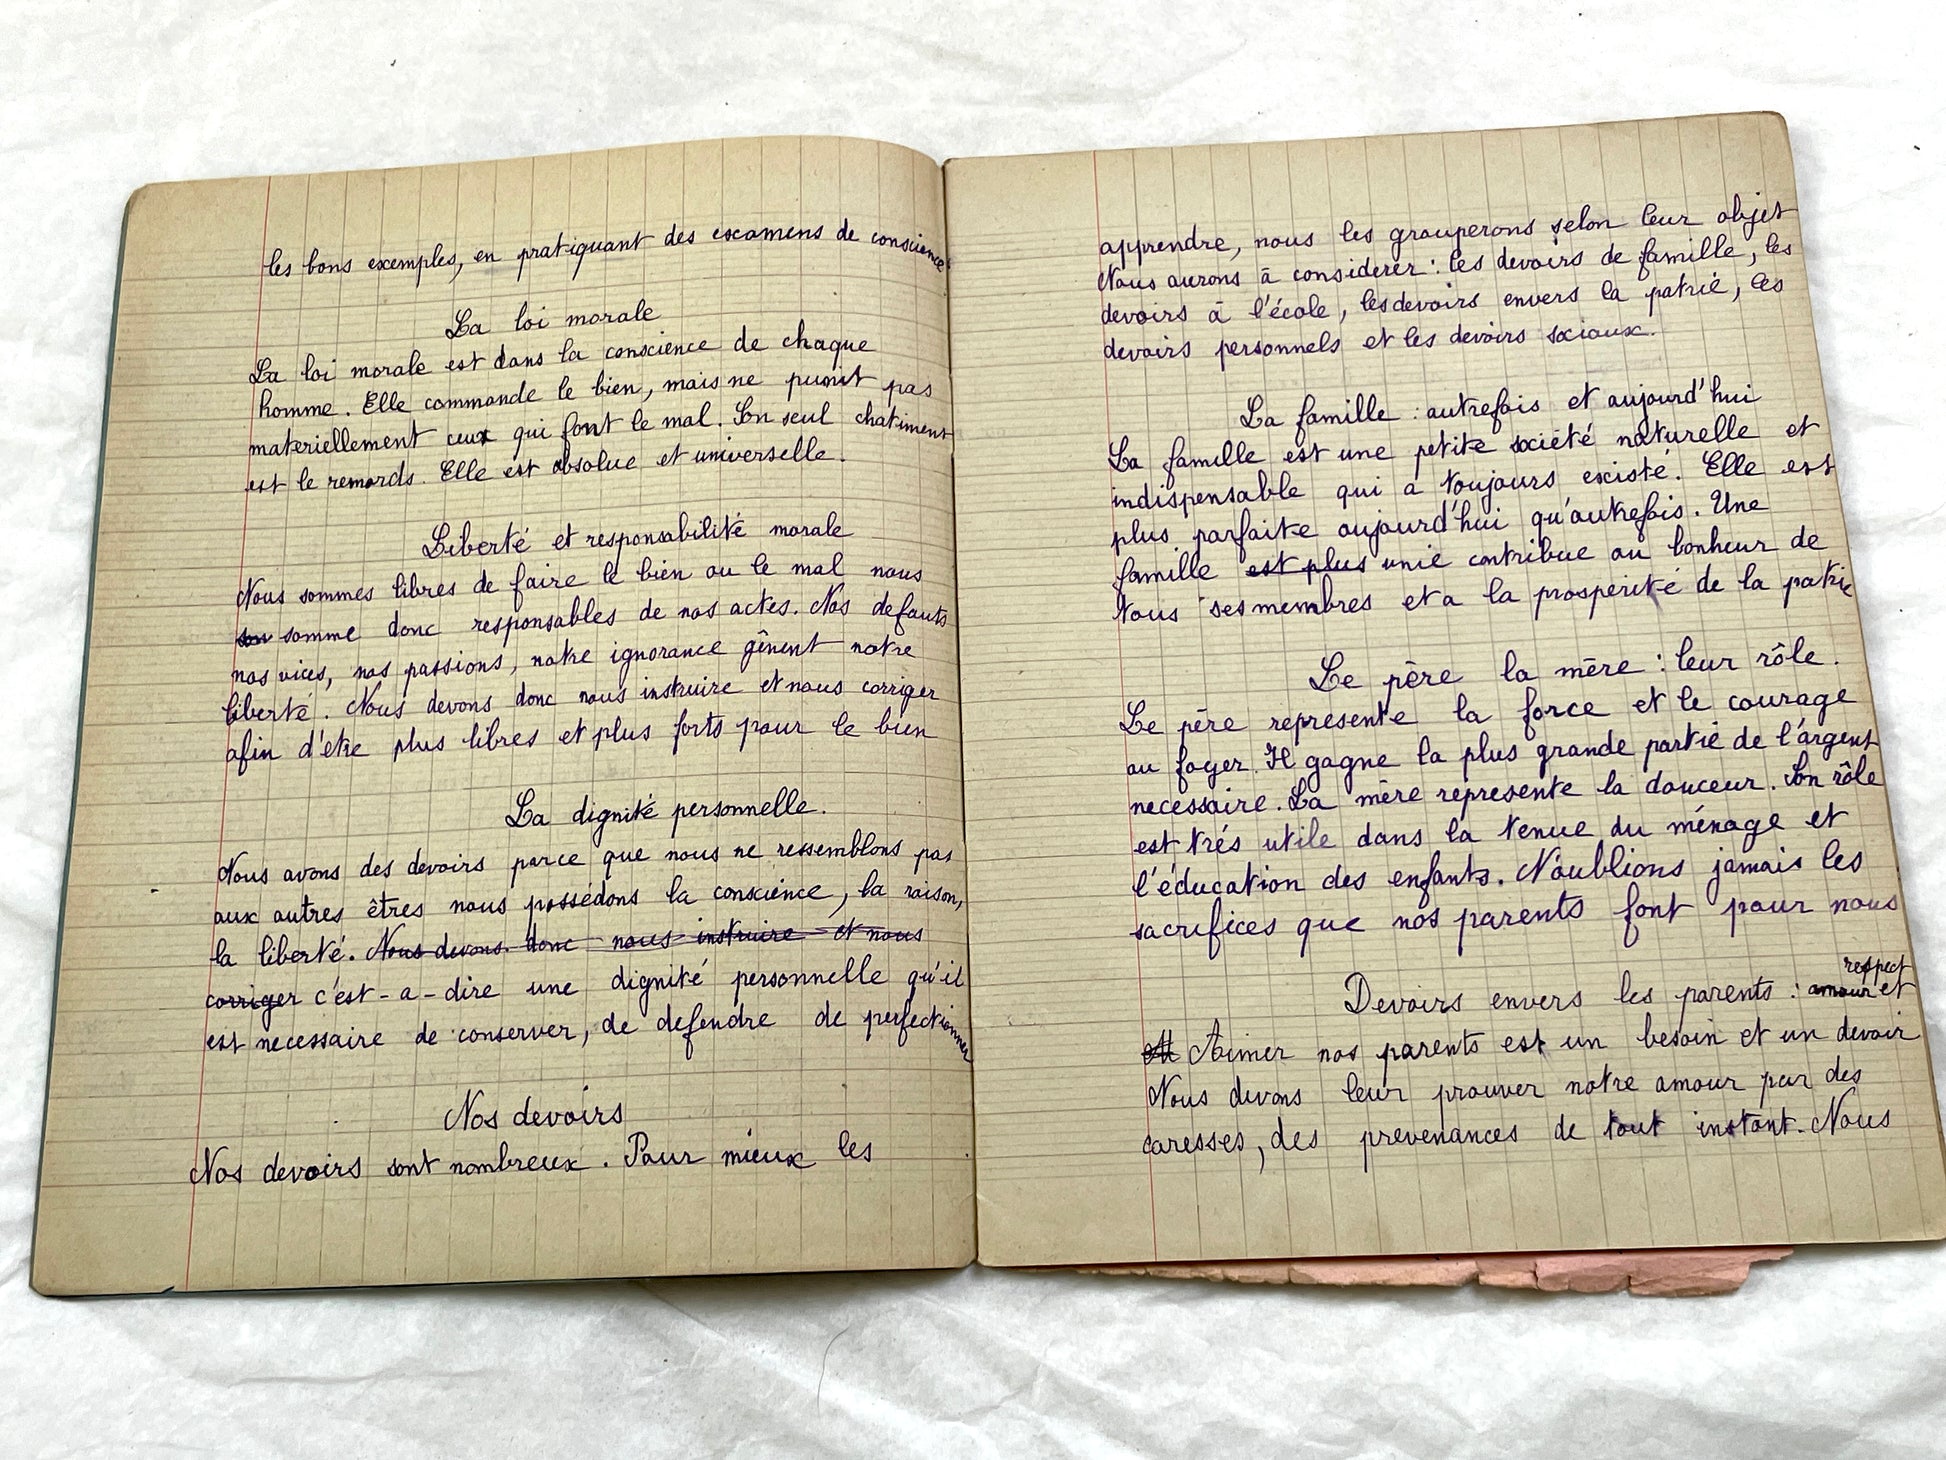 les bons exemples, en pratiquant des escamens de conscience.
La loi morale
La loi morale est dans la conscience de chaque
homme. Elle commande le bien, mais ne punit pas
materiellement ceux qui font le mal. Son seul chatiment
est le remords. Elle est absolue et universelle.
Liberté et responsabilité morale
Nous sommes libres de faire le bien ou le mal nous
son somme donc responsables de nos actes. Nos defauts
nos vices, nos passions, notre ignorance gênent notre
liberté. Nous devons donc nous instruire et nous corriger
afin d'etre plus libres et plus forts pour le bien
La dignité personnelle.
Nous avons des devoirs parce que nous ne ressemblons pas
aux autres êtres nous possédons la conscience, la raison,
la liberté. Nous devons donc nous instruire et nous
corriger c'est-a-dire une dignité personnelle qu'il
est necessaire de conserver, de defendre de perfectionner
Nos devoirs
Nos devoirs sont nombreux. Pour mieux les
apprendre, nous les grouperons selon leur objet
Nous aurons à considerer : les devoirs de famille, les
devoirs à l'école, les devoirs envers la patrie, les
devoirs personnels et les devoirs sociaux.
La famille : autrefois et aujourd'hui
La famille est une petite société naturelle et
indispensable qui a toujours escisté. Elle est
plus parfaite aujourd'hui qu'autrefois. Une
famille est plus unie contribue au bonheur de
tous ses membres et a la prosperité de la patrie
Le père la mère : leur rôle.
Le père represente la force et le courage
au foyer. Il gagne la plus grande partie de l'argent
necessaire. La mère represente la douceur. Son rôle
est trés utile dans la tenue du ménage et
l'éducation des enfants. N'oublions jamais les
sacrifices que nos parents font pour nous
respect
Devoirs envers les parents : amour et
Aimer nos parents est un besoin et un devoir
Nous devons leur prouver notre amour par des
caresses, des prevenances de tout instant. Nous